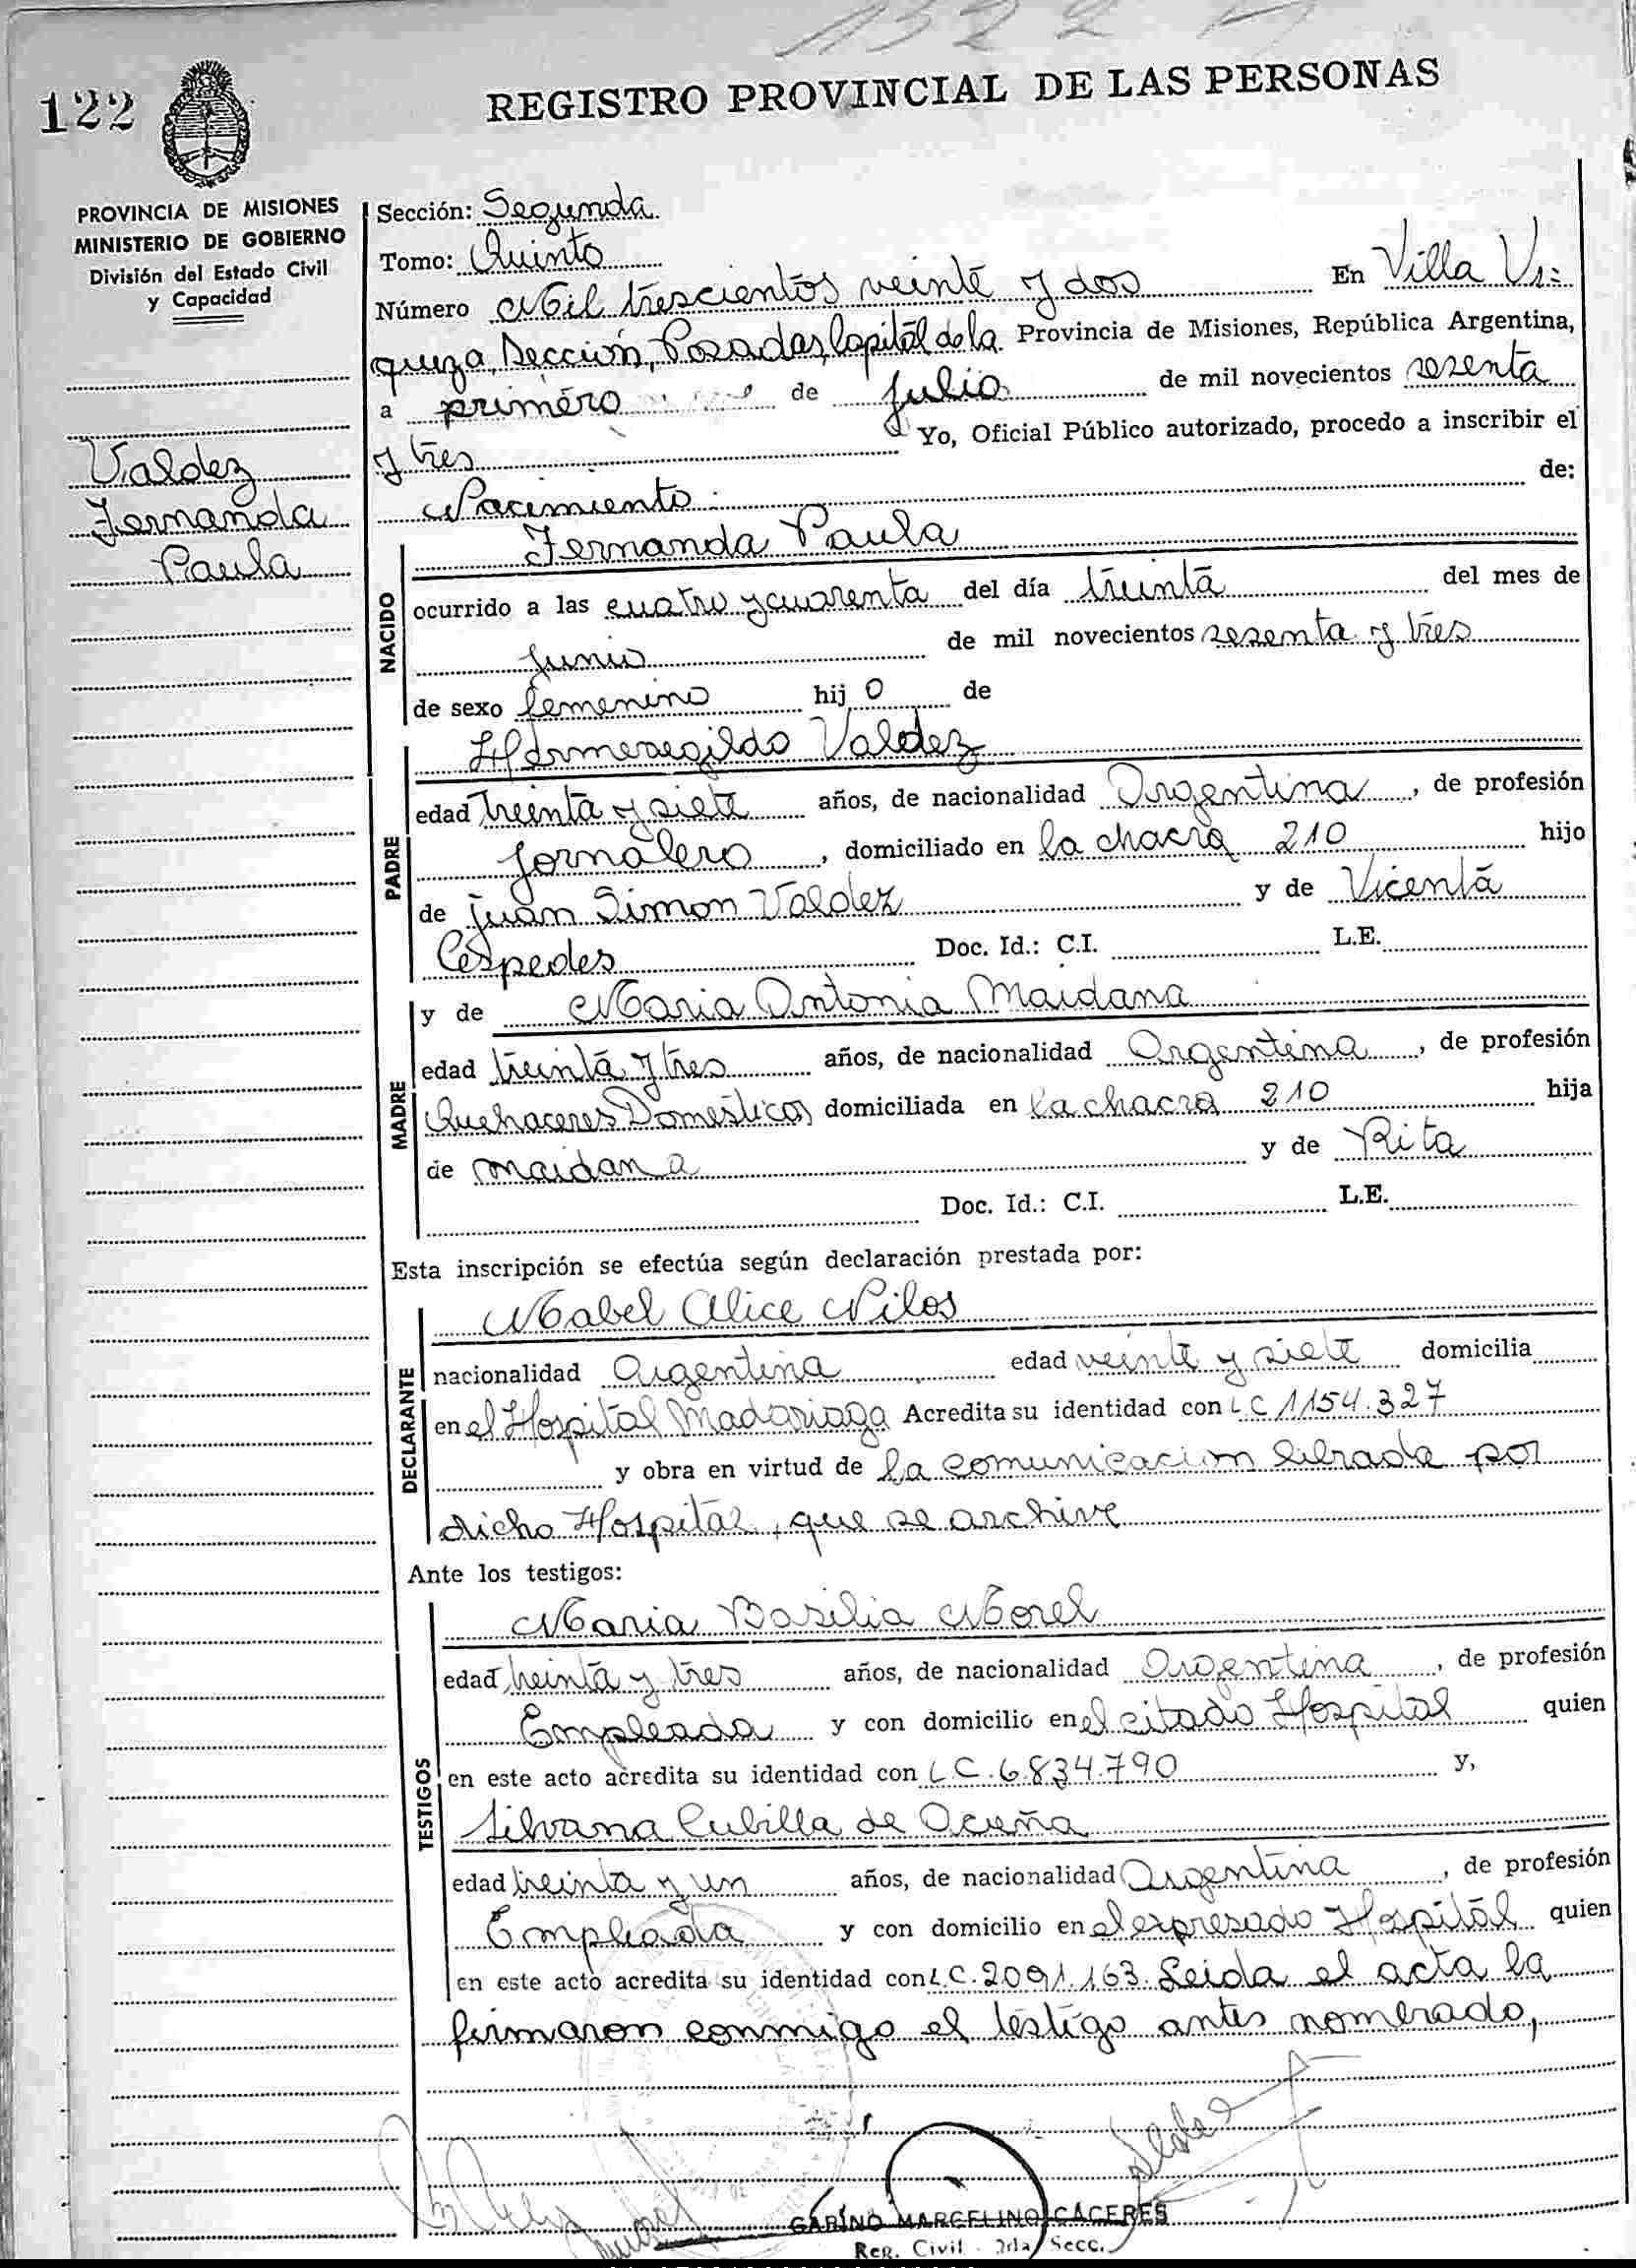 1322
122
REGISTRO PROVINCIAL DE LAS PERSONAS
PROVINCIA DE MISIONES
MINISTERIO DE GOBIERNO
División del Estado Civil
y Capacidad
Valdez
Fernanda
Paula
Sección: Segunda
Tomo: Quinto
Número Mil trescientos veinte y dos En Villa Ur=
quiza, Sección, Posadas, Capital de la Provincia de Misiones, República Argentina,
a primero de Julio de mil novecientos sesenta
y tres Yo, Oficial Público autorizado, procedo a inscribir el
Nacimiento de:
NACIDO
Fernanda Paula
ocurrido a las cuatro y cuarenta del día treinta del mes de
Junio de mil novecientos sesenta y tres
de sexo femenino hij o de
PADRE
Hermeregildo Valdez
edad treinta y siete años, de nacionalidad Argentina, de profesión
Jornalero, domiciliado en la chacra 210 hijo
de Juan Simon Valdez y de Vicenta
Cespedes Doc. Id.: C.I. L.E.
MADRE
y de Maria Antonia Maidana
edad treinta y tres años, de nacionalidad Argentina, de profesión
Quehaceres Domesticos domiciliada en la chacra 210 hija
de maidana y de Rita
Doc. Id.: C.I. L.E.
Esta inscripción se efectúa según declaración prestada por:
DECLARANTE
Mabel Alice Nilos
nacionalidad Argentina edad veinte y siete domicilia
en el Hospital Madariaga Acredita su identidad con L C 1154.327
y obra en virtud de la comunicacion librada por
dicho Hospital, que se archive
Ante los testigos:
TESTIGOS
Maria Basilia Morel
edad treinta y tres años, de nacionalidad Argentina, de profesión
Empleada y con domicilio en el citado Hospital quien
en este acto acredita su identidad con L C. 6.834.790 y,
Silvana Cubilla de Acuña
edad treinta y un años, de nacionalidad Argentina, de profesión
Empleada y con domicilio en el expresado Hospital quien
en este acto acredita su identidad con L.C. 2091.163. Leida el acta la
firmaron conmigo el testigo antes nombrado,
GABINO MARCELINO CACERES
Reg. Civil - 2da Secc.